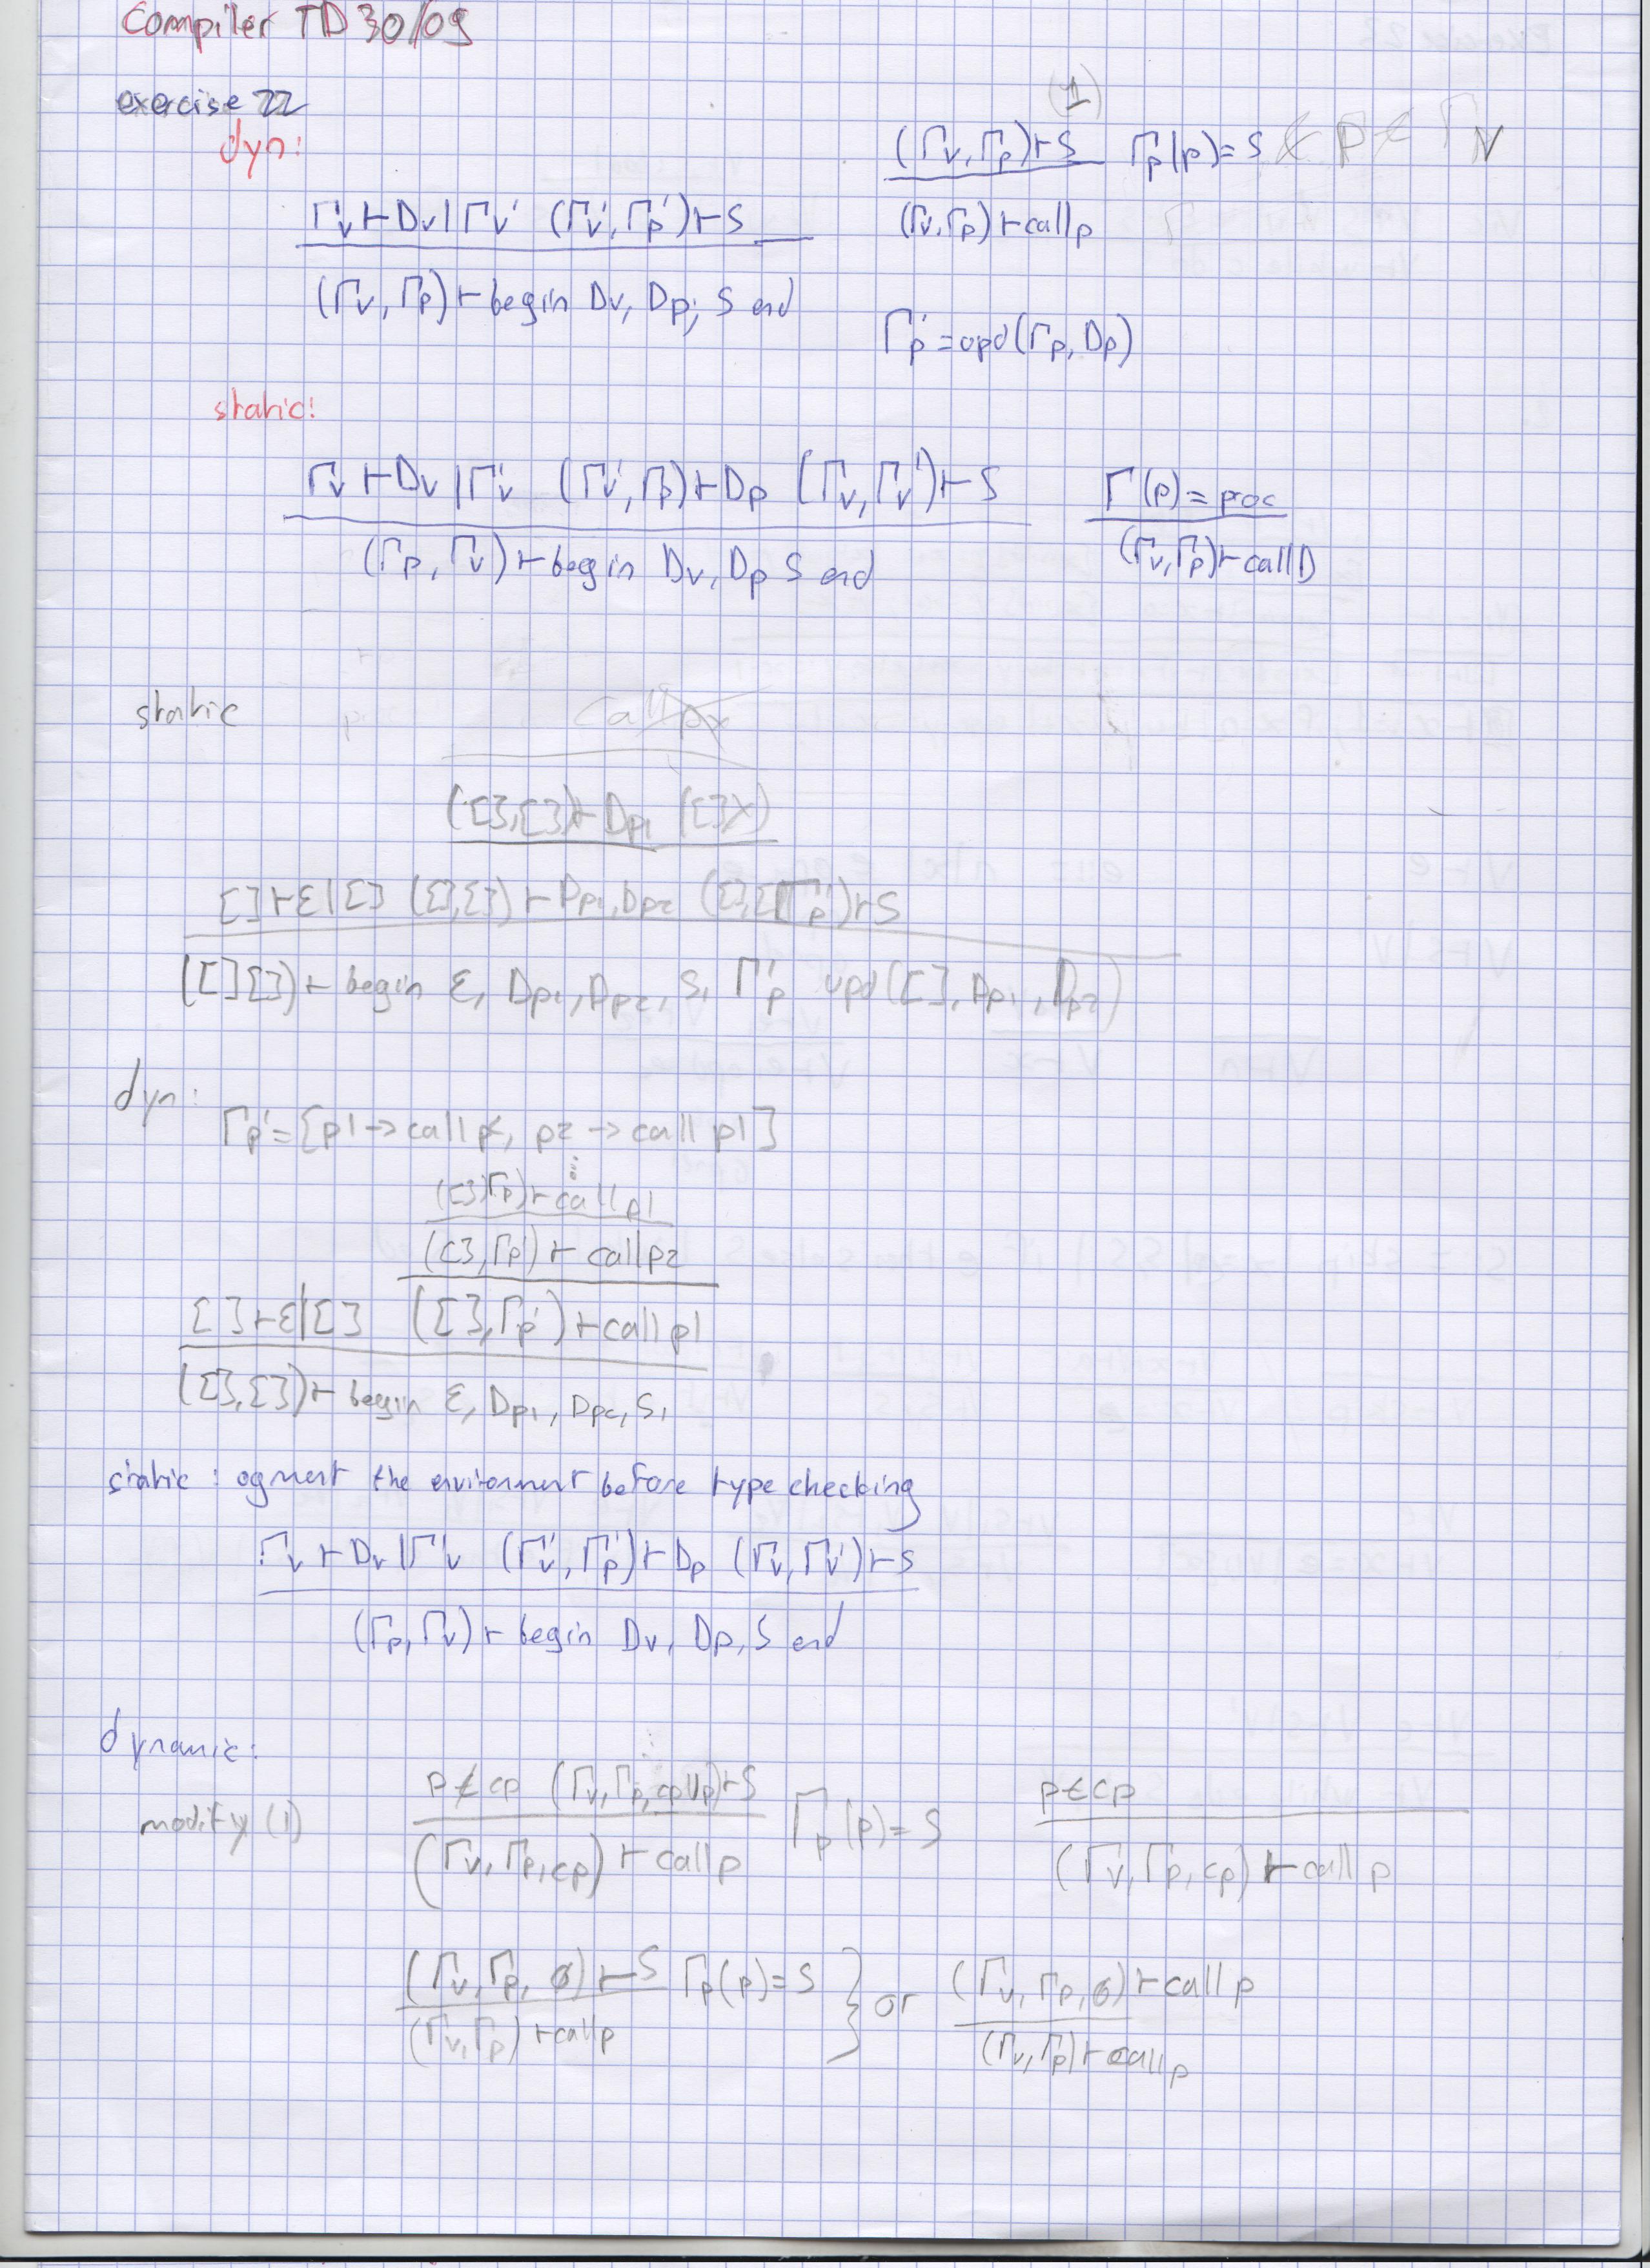 Compiler TD 30/09
exercise 22
dyn:
(1)
(Γv,Γp)⊢S Γp(p)=S
Γv⊢Dv|Γv' (Γv',Γp')⊢S
(Γv,Γp)⊢call p
(Γv,Γp)⊢begin Dv, Dp; S end
Γp'=upd(Γp,Dp)
static:
Γv⊢Dv|Γv' (Γv',Γp)⊢Dp (Γv,Γv')⊢S
Γ(p)=proc
(Γp,Γv)⊢begin Dv, Dp S end
(Γv,Γp)⊢call D
static
([],[])⊢Dp1 ([]
[]⊢ε|[] ([],[])⊢Dp1,Dp2 Γp')⊢S
([][])⊢begin ε, Dp1, Dp2, S, Γp' upd([], Dp1, Dp2)
dyn:
Γp'=[p1→call p2, p2→call p1]
([],Γp')⊢call p1
([],Γp')⊢call p2
[]⊢ε|[] ([],Γp')⊢call p1
([],[])⊢begin ε, Dp1, Dp2, S,
static: ogment the environment before type checking
Γv⊢Dv|Γ'v (Γv',Γp')⊢Dp (Γv,Γv')⊢S
(Γp,Γv)⊢begin Dv, Dp, S end
dynamic:
p∉cp (Γv,Γp,cp∪p)⊢S
Γp(p)=S
p∈cp
modify (1)
(Γv,Γp,cp)⊢call p
(Γv,Γp,cp)⊢call p
(Γv,Γp,∅)⊢S Γp(p)=S } or (Γv,Γp,∅)⊢call p
(Γv,Γp)⊢call p
(Γv,Γp)⊢call p